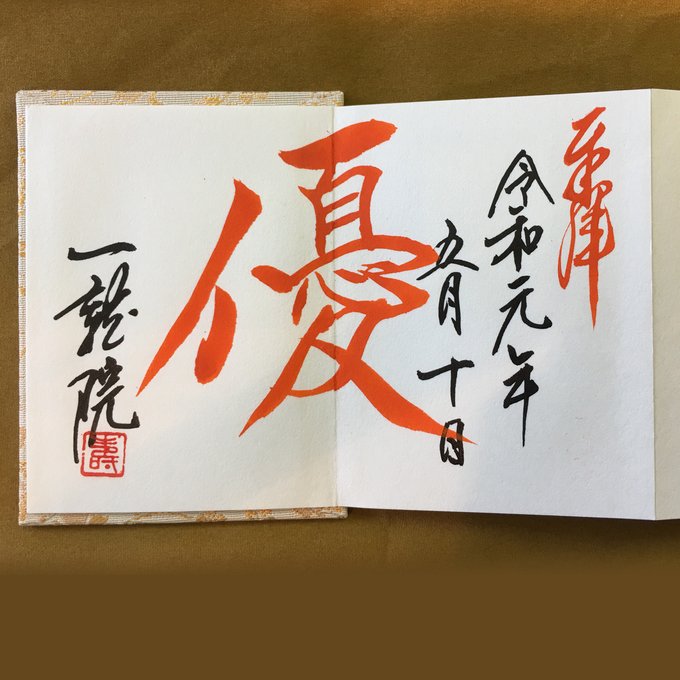 奉拝
令和元年
五月十日
優
一龍院